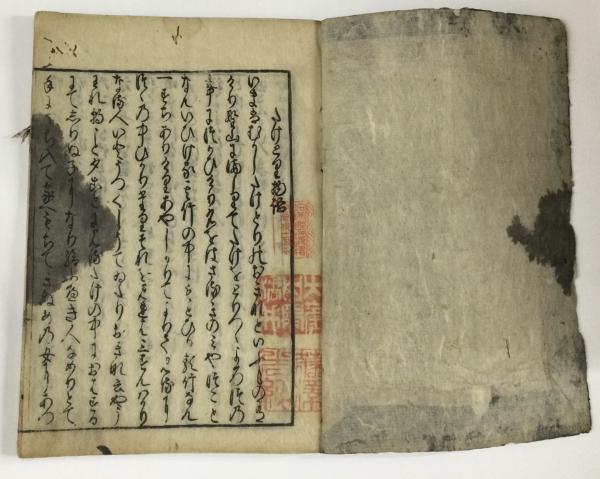 たけとり物語
いまはむかしたけとりのおきなといふものあり
けり野山にましりてたけをとりつゝよろつの
事につかひけり名をはさぬきのみやつこと
なんいひける其竹の中にもとひかる竹なん
一すちありけりあやしかりてよりてみるに
つゝの中ひかりたりそれをみれは三すんはかり
なる人いとうつくしうてゐたりおきな云やう
われ朝こと夕ことにみるたけの中におはする
にてしりぬ子になり給ふへき人なめりとて
手にうち入て家へもちてきぬめの女にあつ